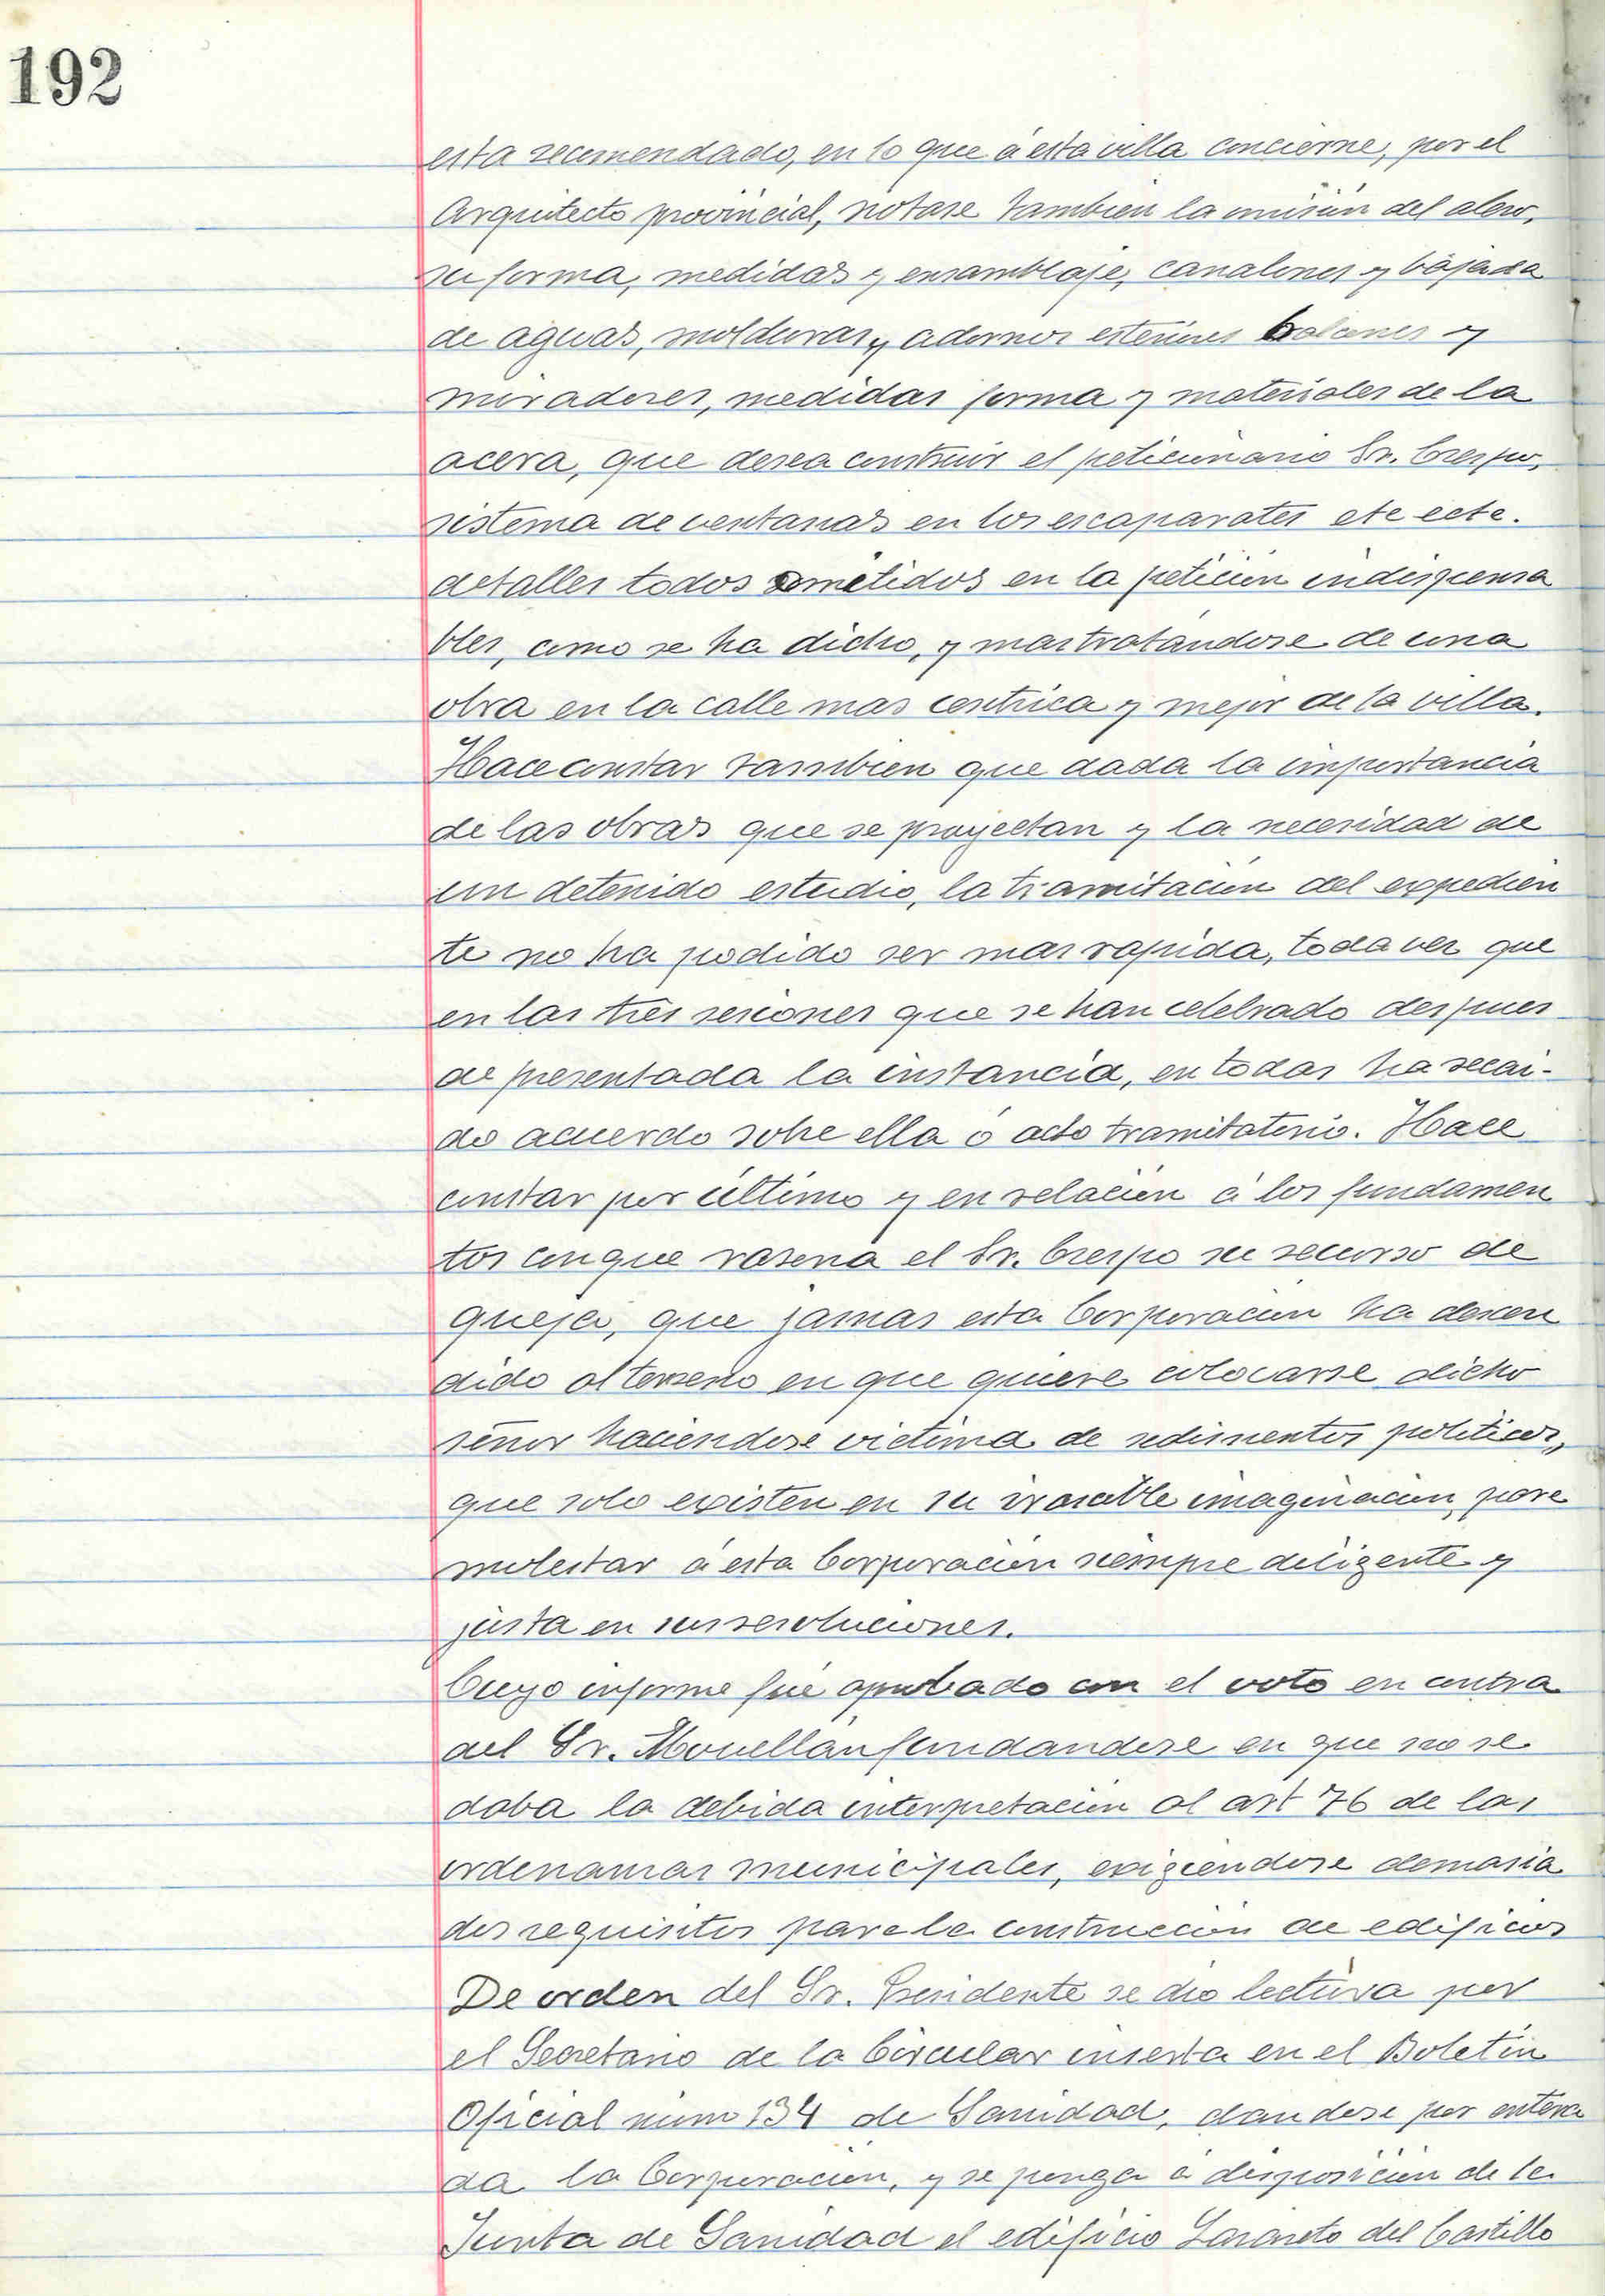 192
esta recomendado, en lo que á esta villa concierne, por el
Arquitecto provincial, notase tambien la omisión del alero,
su forma, medidas y ensamblaje, canalones y bajada
de aguas, molduras y adornos esteriores balcones y
miradores, medidas forma y materiales de la
acera, que desea construir el peticionario Sr. Crespo,
sistema de ventanas en los escaparates etc ectc.
detalles todos omitidos en la petición indispensa
bles, como se ha dicho, y mas tratándose de una
obra en la calle mas centrica y mejor de la villa.
Hace constar tambien que dada la importancia
de las obras que se proyectan y la necesidad de
un detenido estudio, la tramitación del expedien
te no ha podido ser mas rapida, toda vez que
en las tres sesiones que se han celebrado despues
de presentada la instancia, en todas ha recai-
do acuerdo sobre ella ó acto tramitatorio. Hace
constar por último y en relación á los fundamen
tos con que rasona el Sr. Crespo su recurso de
queja, que jamas esta Corporación ha descen
dido al terreno en que quiere colocarse dicho
señor haciendose victima de sedimentos politicos,
que solo existen en su irascible imaginación, para
molestar á esta Corporación siempre diligente y
justa en sus resoluciones.
Cuyo informe fué aprobado con el voto en contra
del Sr. Mouellán fundandose en que no se
daba la debida interpretación al art 76 de las
ordenanzas municipales, exigiendose demasia
dos requisitos para la construcción de edificios
De orden del Sr. Presidente se dio lectura por
el Secretario de la Circular inserta en el Boletin
Oficial núm 134 de Sanidad, dandose por entera
da la Corporación, y se ponga á disposición de la
Junta de Sanidad el edificio Lazareto del Castillo